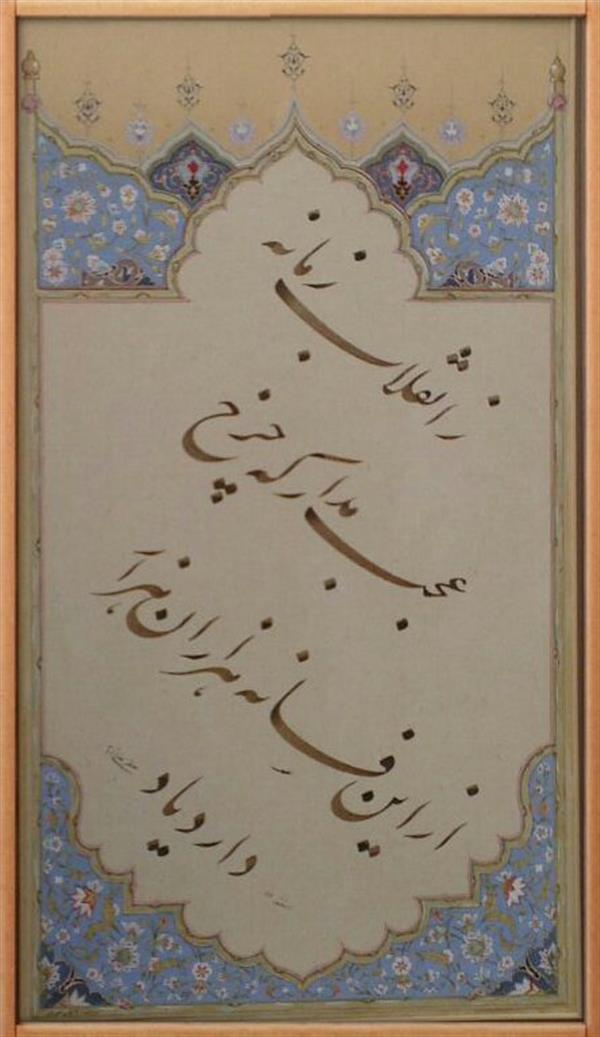 ز انقلاب زمانه
عجب مدار که چرخ
از این فسانه هزاران هزار
دارد یاد